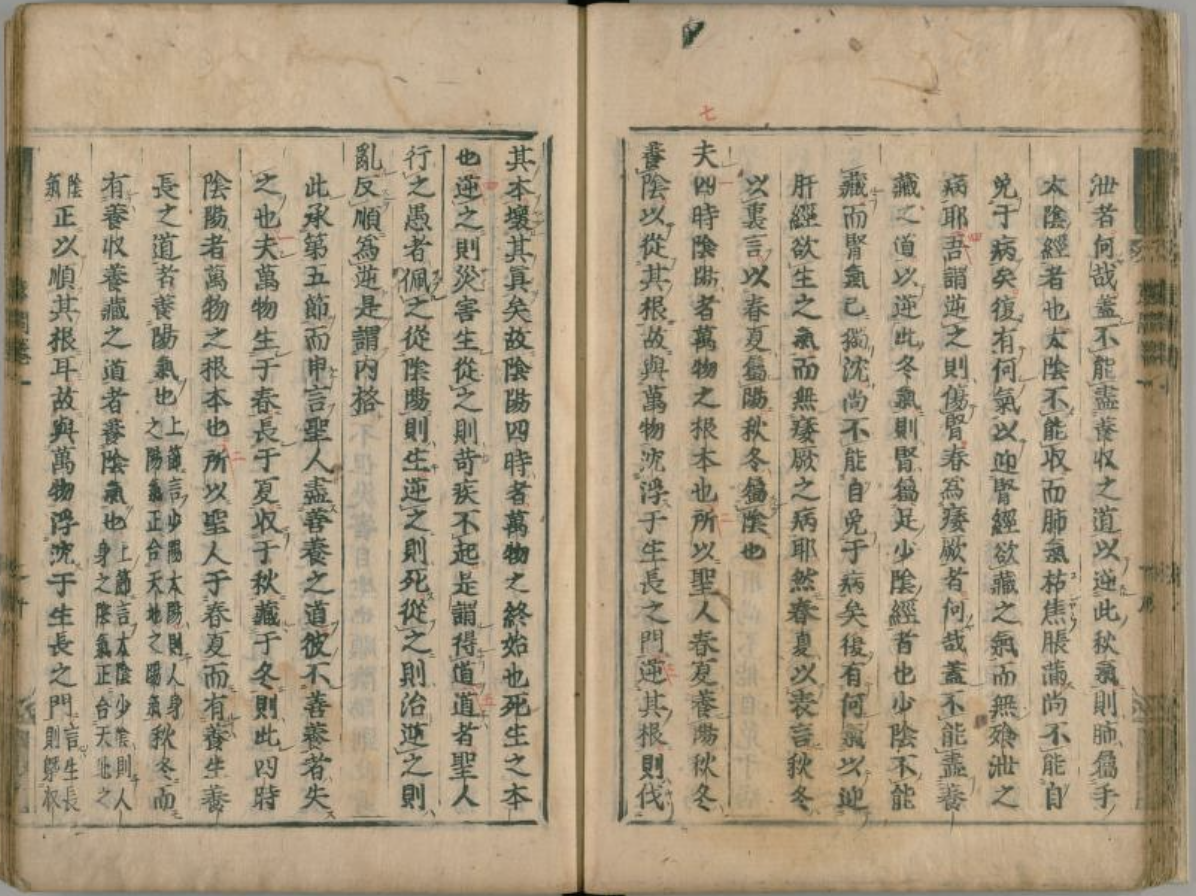 泄者何哉蓋不能盡養收之道以逆此秋氣則肺屬手
太陰經者也太陰不能收而肺氣枯焦脹滿尚不能自
免于病矣復有何氣以迎腎經欲藏之氣而無飱泄之
病耶吾謂逆之則傷腎春爲痿厥者何哉蓋不能盡養
藏之道以逆此冬氣則腎屬足少陰經者也少陰不能
藏而腎氣已獨沈尚不能自免于病矣復有何氣以迎
肝經欲生之氣而無痿厥之病耶然春夏以表言秋冬
以裏言以春夏屬陽秋冬屬陰也
七
夫四時陰陽者萬物之根本也所以聖人春夏養陽秋冬
養陰以從其根故與萬物沈浮于生長之門逆其根則伐
其本壞其真矣故陰陽四時者萬物之終始也死生之本
也逆之則災害生從之則苛疾不起是謂得道道者聖人
行之愚者佩之從陰陽則生逆之則死從之則治逆之則
亂反順爲逆是謂内格
此承第五節而申言聖人盡善養之道彼不善養者失
之也夫萬物生于春長于夏收于秋藏于冬則此四時
陰陽者萬物之根本也所以聖人于春夏而有養生養
長之道者養陽氣也上節言少陽太陽則人身之陽氣正合天地之陽氣秋冬而
有養收養藏之道者養陰氣也上節言太陰少陰則人身之陰氣正合天地之
陰氣正以順其根耳故與萬物浮沈于生長之門言生長則舉收